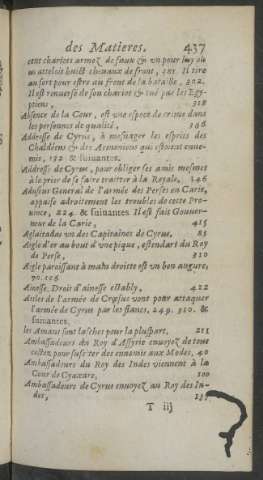 des Matieres. 437
cent chariots armez de faux & vn pour luy où
on atteloit huict chevaux de front, 311. Il tire
au sort pour estre au front de la bataille, 302.
Il est renversé de son chariot & tué par les Egy-
ptiens, 318
Absence de la Cour, est vne espece de crime dans
les personnes de qualité, 396
Addresse de Cyrus, à mesnager les esprits des
Chaldéens & des Armeniens qui estoient enne-
mis, 132. & suivantes.
Addresse de Cyrus, pour obliger ses amis mesmes
à le prier de se faire traitter à la Royale, 46
Adusius General de l'armée des Perses en Carie,
appaise adroitement les troubles de cette Pro-
vince, 224. & suivantes Il est fait Gouver-
neur de la Carie, 415
Aglaitadas vn des Capitaines de Cyrus, 85
Aigle d'or au bout d'vne pique, estendart du Roy
de Perse, 310
Aigle paroissant à main droitte est vn bon augure,
70. 106
Ainesse, Droit d'ainesse estably, 422
Aisles de l'armée de Crœsus vont pour attaquer
l'armée de Cyrus par les flancs, 249. 310. &
suivantes.
les Amans sont lasches pour la pluspart, 211
Ambassadeurs du Roy d'Assyrie envoyez de tous
costez pour susciter des ennemis aux Medes, 40
Ambassadeurs du Roy des Indes viennent à la
Cour de Cyaxare, 100
Ambassadeurs de Cyrus envoyez au Roy des In-
des, 137
T iij